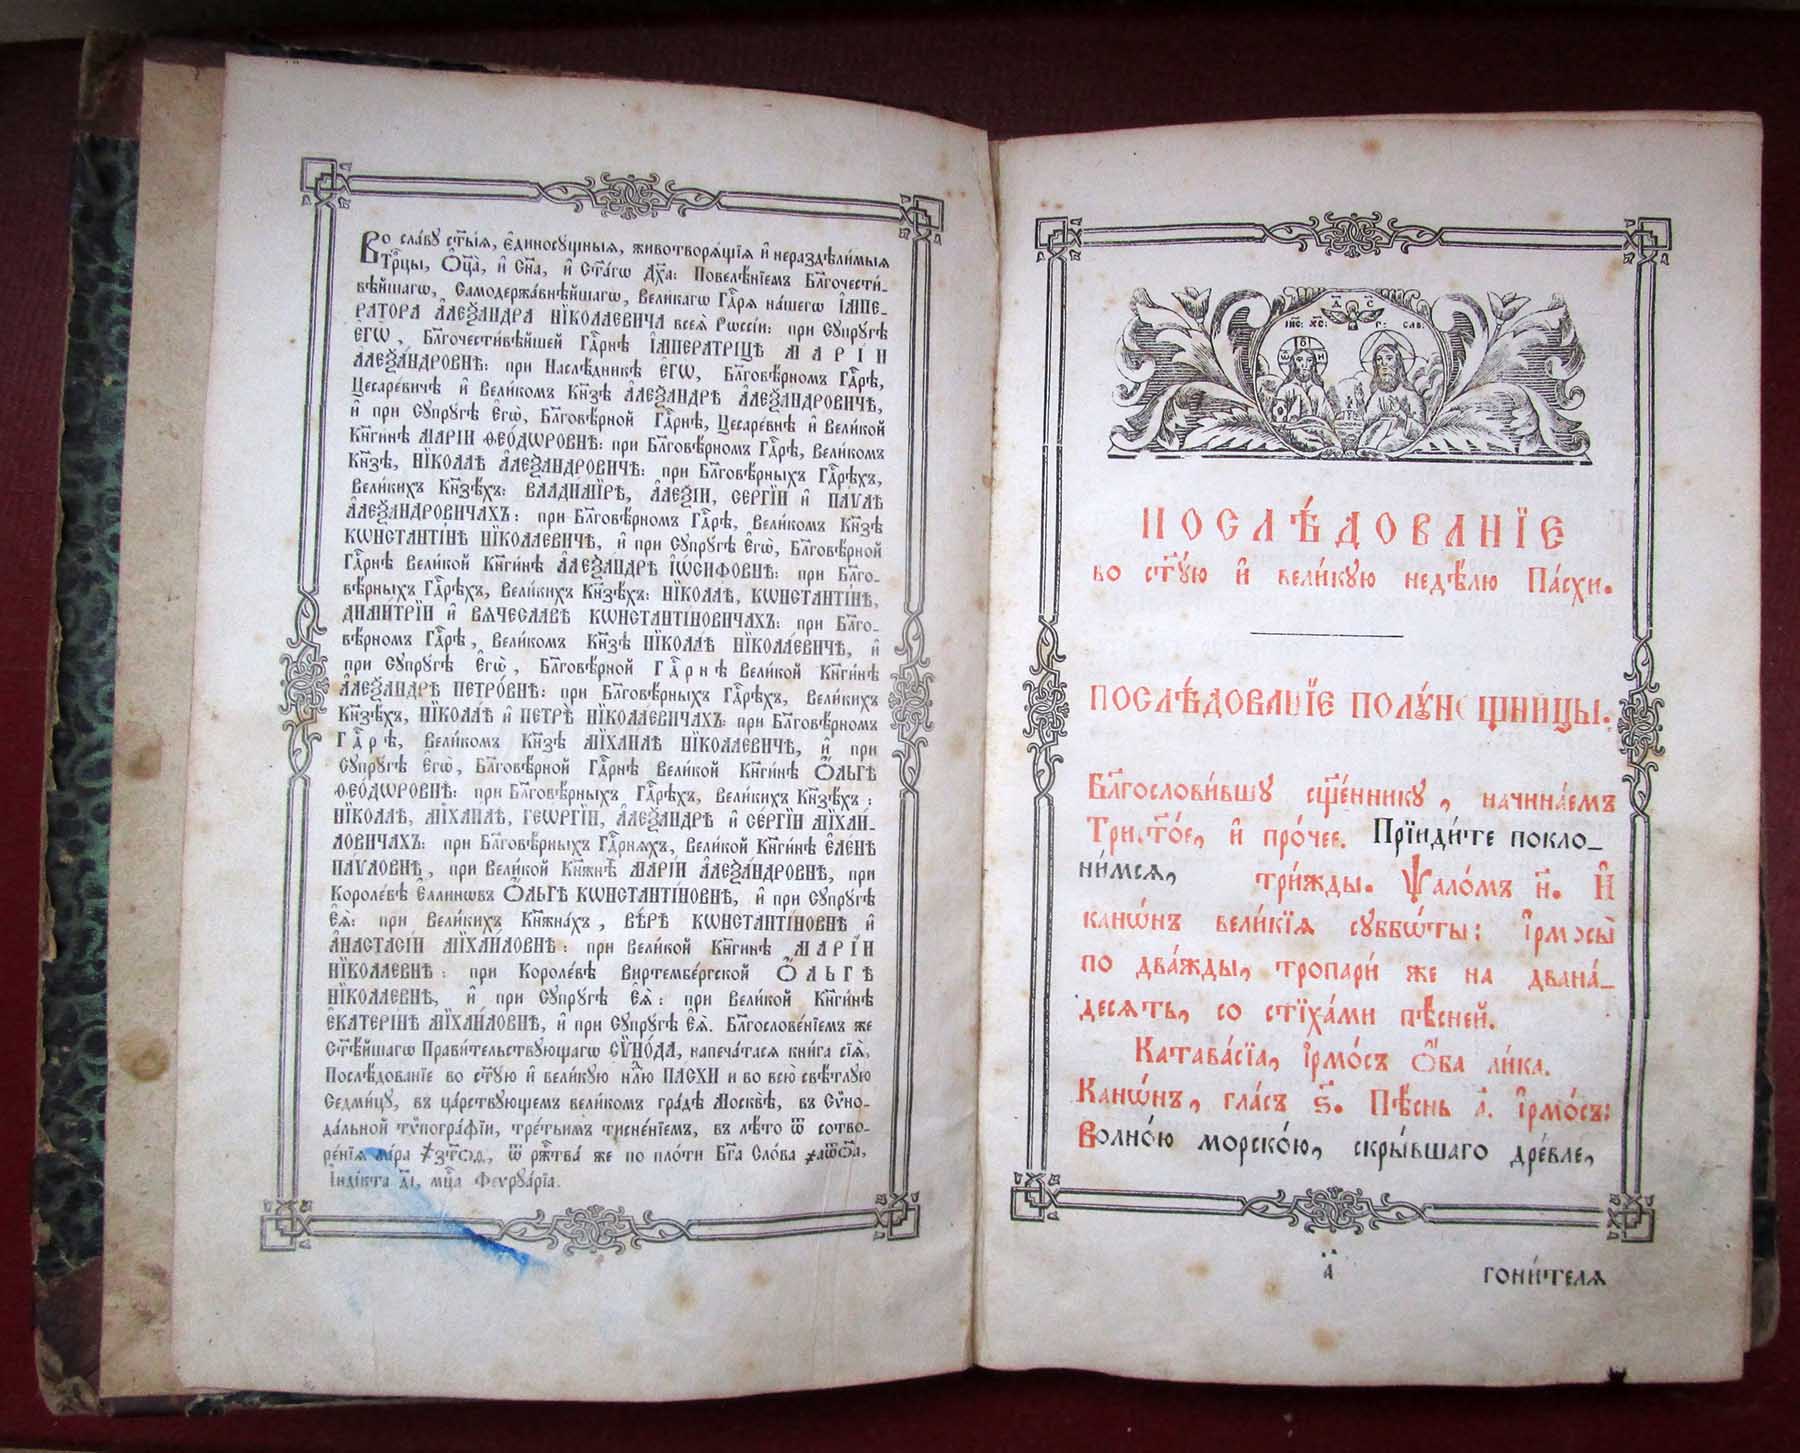 Во сла́ву ст҃ы́ѧ, є҆диносꙋ́щныѧ, животворѧ́щїѧ и҆ нераздѣ́лимыѧ
Трⷪ҇цы, Ѻ҆ц҃а̀, и҆ Сн҃а, и҆ Ст҃а́гѡ Дх҃а: Повелѣ́нїемъ Бл҃гочести́-
вѣйшагѡ, Самодержа́внѣйшагѡ, Вели́кагѡ Гдⷭ҇рѧ на́шегѡ І҆МПЕ-
РАТОРА А҆ЛЕѮА́НДРА НЇКОЛА́ЕВИЧА всеѧ̀ Рѡссі́и: при Сꙋпрꙋ́гѣ
Є҆ГѠ̀, Бл҃гочести́вѣйшей Гдⷭ҇рнѣ І҆МПЕРАТРИ́ЦѢ МАРІ́И
А҆ЛЕѮА́НДРОВНѢ: при Наслѣ́дникѣ Є҆ГѠ̀, Бл҃говѣ́рномъ Гдⷭ҇рѣ,
Цесаре́вичѣ и҆ Вели́комъ Кн҃зѣ А҆ЛЕѮА́НДРѢ А҆ЛЕѮА́НДРОВИЧѢ,
и҆ при Сꙋпрꙋ́гѣ Є҆гѡ̀, Бл҃говѣ́рной Гдⷭ҇рнѣ, Цесаре́внѣ и҆ Вели́кой
Кн҃ги́нѣ МАРІ́И Ѳео́дѡровнѣ: при Бл҃говѣ́рномъ Гдⷭ҇рѣ, Вели́комъ
Кн҃зѣ, НЇКОЛА́Ѣ А҆ЛЕѮА́НДРОВИЧѢ: при Бл҃говѣ́рныхъ Гдⷭ҇рѣхъ,
Вели́кихъ Кн҃зѣхъ: ВЛАДИ́МІРѢ, А҆ЛЕѮІ́И, СЕ́РГІИ и҆ ПА́VЛѢ
А҆ЛЕѮА́НДРОВИЧАХЪ: при Бл҃говѣ́рномъ Гдⷭ҇рѣ, Вели́комъ Кн҃зѣ
КѠНСТАНТІ́НѢ НЇКОЛА́ЕВИЧѢ, и҆ при Сꙋпрꙋ́гѣ Є҆гѡ̀, Бл҃говѣ́рной
Гдⷭ҇рнѣ Вели́кой Кн҃ги́нѣ А҆ЛЕѮА́НДРѢ І҆Ѡ́СИФОВНѢ: при Бл҃го-
вѣ́рныхъ Гдⷭ҇рѣхъ, Вели́кихъ Кн҃зѣхъ: НЇКОЛА́Ѣ, КѠНСТАНТІ́НѢ,
ДИМИ́ТРІИ и҆ ВѦЧЕСЛА́ВѢ КѠНСТАНТІ́НОВИЧАХЪ: при Бл҃го-
вѣ́рномъ Гдⷭ҇рѣ, Вели́комъ Кн҃зѣ НЇКОЛА́Ѣ НЇКОЛА́ЕВИЧѢ, и҆
при Сꙋпрꙋ́гѣ Є҆гѡ̀, Бл҃говѣ́рной Гдⷭ҇рнѣ Вели́кой Кн҃ги́нѣ
А҆ЛЕѮА́НДРѢ ПЕТРО́ВНѢ: при Бл҃говѣ́рныхъ Гдⷭ҇рѣхъ, Вели́кихъ
Кн҃зѣхъ, НЇКОЛА́Ѣ и҆ ПЕТРѢ̀ НЇКОЛА́ЕВИЧАХЪ: при Бл҃говѣ́рномъ
Гдⷭ҇рѣ, Вели́комъ Кн҃зѣ МЇХАИ́ЛѢ НЇКОЛА́ЕВИЧѢ, и҆ при
Сꙋпрꙋ́гѣ Є҆гѡ̀, Бл҃говѣ́рной Гдⷭ҇рнѣ Вели́кой Кн҃ги́нѣ Ѻ҆́ЛЬГѢ
ѲЕО́ДѠРОВНѢ: при Бл҃говѣ́рныхъ Гдⷭ҇рѣхъ, Вели́кихъ Кн҃зѣхъ:
НЇКОЛА́Ѣ, МЇХАИ́ЛѢ, ГЕѠ́РГІИ, А҆ЛЕѮА́НДРѢ и҆ СЕ́РГІИ МЇХА́И-
ЛОВИЧАХЪ: при Бл҃говѣ́рныхъ Гдⷭ҇рнѧхъ, Вели́кой Кн҃ги́нѣ Є҆ЛЕ́НѢ
ПА́VЛОВНѢ, при Вели́кой Кн҃жнѣ̀ МАРІ́И А҆ЛЕѮА́НДРОВНѢ, при
Короле́вѣ Є҆́ллинѡвъ Ѻ҆́ЛЬГѢ КѠНСТАНТІ́НОВНѢ, и҆ при Сꙋпрꙋ́гѣ
Є҆ѧ̀: при Вели́кихъ Кн҃жна́хъ, ВѢ́РѢ КѠНСТАНТІ́НОВНѢ и҆
А҆НАСТАСІ́И МЇХА́ЙЛОВНѢ: при Вели́кой Кн҃ги́нѣ МАРІ́И
НЇКОЛА́ЕВНѢ: при Короле́вѣ Виртембе́ргской Ѻ҆́ЛЬГѢ
НЇКОЛА́ЕВНѢ, и҆ при Сꙋпрꙋ́гѣ Є҆ѧ̀: при Вели́кой Кн҃ги́нѣ
Є҆КАТЕРИ́НѢ МЇХА́ЙЛОВНѢ, и҆ при Сꙋпрꙋ́гѣ Є҆ѧ̀. Бл҃гослове́нїемъ же
Ст҃ѣ́йшагѡ Прави́тельствꙋющагѡ СѴНО́ДА, напеча́тасѧ кни́га сїѧ̀,
Послѣ́дованїе во ст҃ꙋ́ю и҆ вели́кꙋю нлⷣю ПА́СХИ и во всю̀ свѣ́тлꙋю
Седми́цꙋ, въ ца́рствꙋющемъ вели́комъ гра́дѣ Москвѣ̀, въ Сѵно-
да́льной тѷпогра́фїи, тре́тьимъ тисне́нїемъ, въ лѣ́то ѿ сотво-
ре́нїѧ мі́ра ҂зто́ѧ, ѿ ржⷭ҇тва̀ же по пло́ти Бг҃а Сло́ва ҂аѿоа,
І҆ндї́кта д҃і, мцⷭ҇а Феврꙋа́рїа.
І҆ИС: ХС: Д С Г: САВ:
Ѡ О Н
ПОСЛѢ́ДОВАНЇЕ
во ст҃ꙋ́ю и҆ вели́кꙋю недѣ́лю Па́схи.
ПОСЛѢ́ДОВАНЇЕ ПОЛꙊ́НОЩНИЦЫ.
Бл҃гослови́вшꙋ сщ҃е́нникꙋ, начина́емъ
Трист҃о́е, и҆ про́чее. Прїиди́те покло-
ни́мсѧ, три́жды. Ѱало́мъ н҃. И҆
канѡ́нъ вели́кїѧ сꙋббѡ́ты: І҆рмосы̀
по два́жды, тропари́ же на двана́-
десѧть, со стїха́ми пѣ́сней.
Катава́сїа, і҆рмо́съ ѻ҆́ба ли́ка.
Канѡ́нъ, гла́съ ѕ҃. Пѣ́снь а҃. І҆рмо́съ:
Волно́ю морско́ю, скры́вшаго дре́вле,
а
гони́телѧ